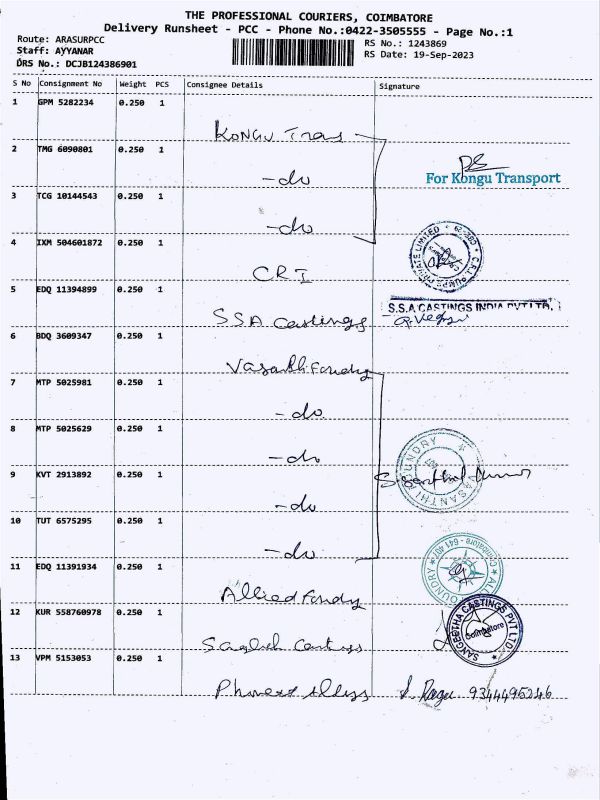 THE PROFESSIONAL COURIERS, COIMBATORE
Delivery Runsheet - PCC - Phone No.:0422-3505555 - Page No.:1
Route: ARASURPCC
Staff: AYYANAR
DRS No.: DCJB124386901
RS No.: 1243869
RS Date: 19-Sep-2023
S No Consignment No Weight PCS Consignee Details Signature
1 GPM 5282234 0.250 1
Kongu Trans
2 TMG 6090801 0.250 1
-do
For Kongu Transport
3 TCG 10144543 0.250 1
-do
4 IXM 504601872 0.250 1
CRI
C.R.I. PUMPS PRIVATE LIMITED
5 EDQ 11394899 0.250 1
SSA Castings
S.S.A CASTINGS INDIA PVT LTD.
6 BDQ 3609347 0.250 1
Vasanthi Foundry
7 MTP 5025981 0.250 1
-do
8 MTP 5025629 0.250 1
-do
VASANTHI FOUNDRY
9 KVT 2913892 0.250 1
-do
10 TUT 6575295 0.250 1
-do
11 EDQ 11391934 0.250 1
Allied Foundry
Coimbatore - 641 407
FOUNDRY
12 KUR 558760978 0.250 1
SANGEETHA CASTINGS PVT LTD
Coimbatore
13 VPM 5153053 0.250 1
S. Ragu 9344495246